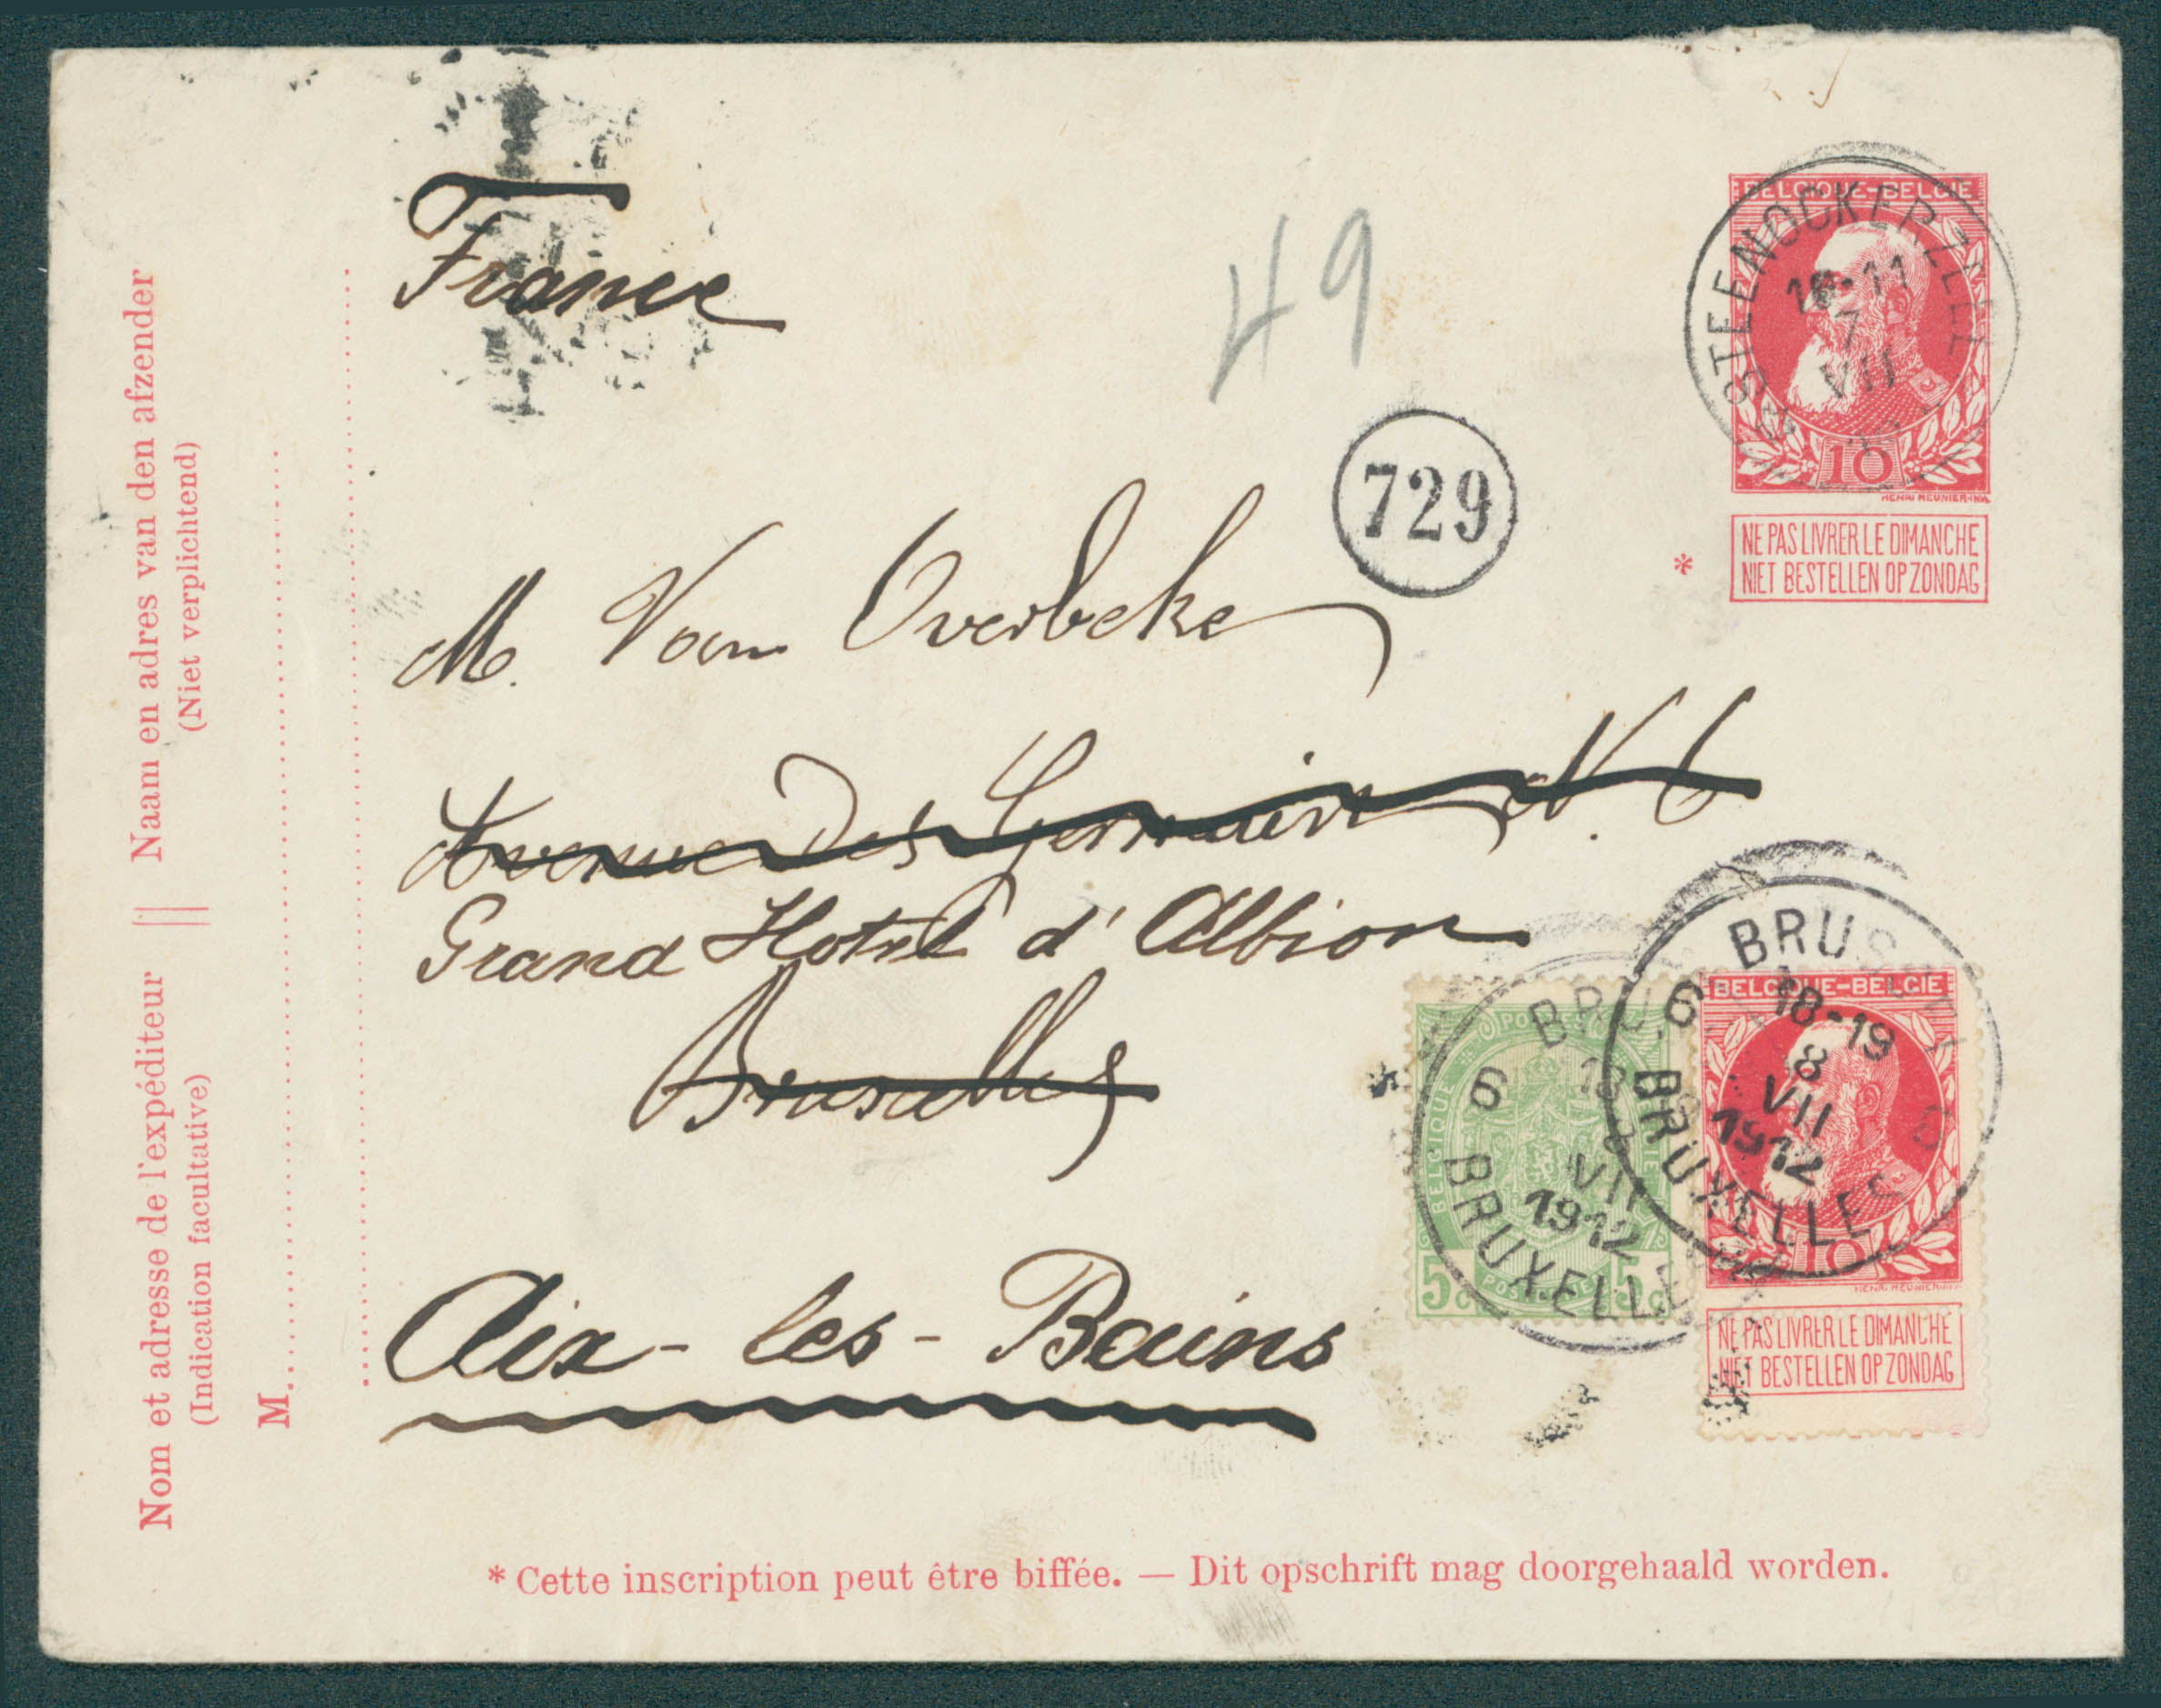 France
49
BELGIQUE-BELGIE
STEENOCKERZEEL
7
VII
10
HENRI MEUNIER-INV.
NE PAS LIVRER LE DIMANCHE
NIET BESTELLEN OP ZONDAG
*
729
M. Van Overbeke
Avenue des Germains N. 6
Grand Hotel d'Albion
Bruxelles
Aix-les-Bains
BRUSSEL
6 6
18-19
8
VII
1912
BRUXELLES
BELGIQUE-BELGIE
10
HENRI MEUNIER-INV.
NE PAS LIVRER LE DIMANCHE
NIET BESTELLEN OP ZONDAG
BRU
6
VII
1912
BRUXELLES
BELGIQUE
POSTERIJEN
5 C 5 C
Naam en adres van den afzender
(Niet verplichtend)
Nom et adresse de l'expéditeur
(Indication facultative)
M.
* Cette inscription peut être biffée. — Dit opschrift mag doorgehaald worden.